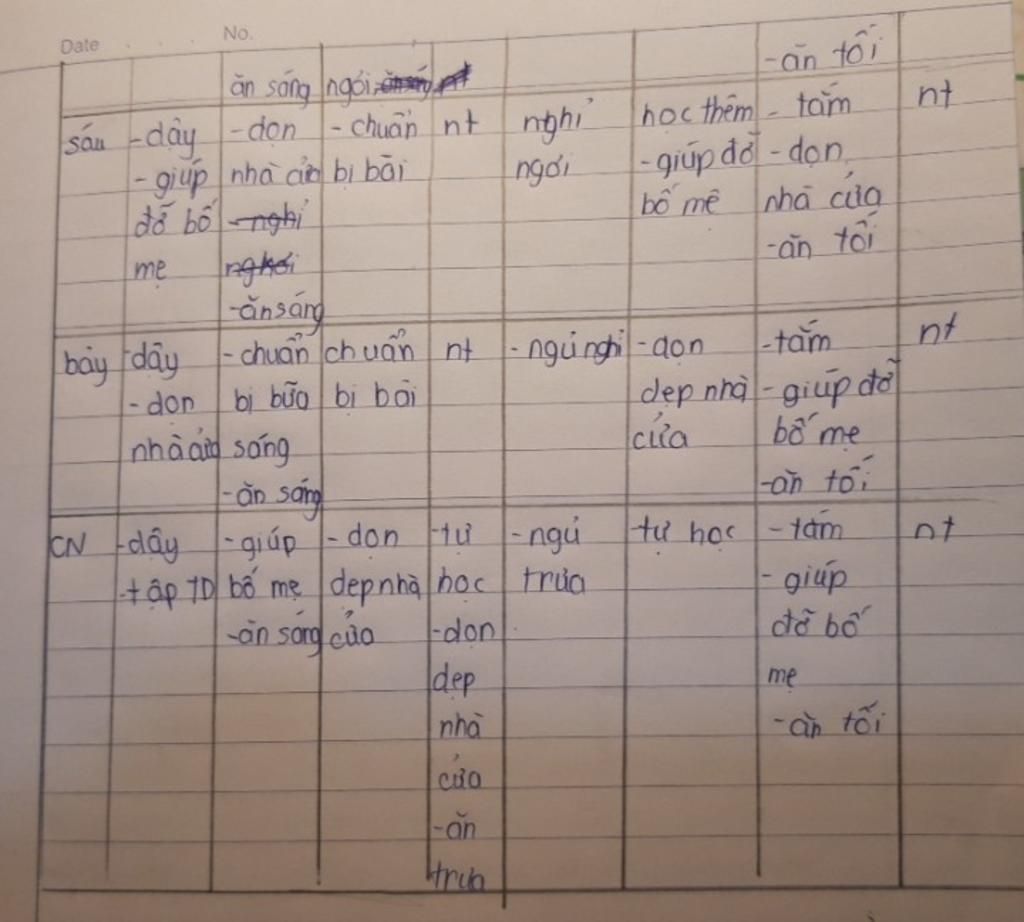 Date No.
-ăn tối
ăn sáng ngói ăn sáng nt
sáu -dậy -dọn -chuẩn nt nghỉ học thêm -tắm nt
-giúp nhà cửa bị bài ngơi -giúp đỡ -dọn
đỡ bố -nghỉ bố mẹ nhà cửa
mẹ ngơi -ăn tối
-ăn sáng
bảy -dậy -chuẩn chuẩn nt -ngủ nghỉ -dọn -tắm nt
-dọn bị bữa bị bài dẹp nhà -giúp đỡ
nhà cửa sáng cửa bố mẹ
-ăn sáng -ăn tối
CN -dậy -giúp -dọn -tự -ngủ tự học -tắm nt
-tập TD bố mẹ dẹp nhà học trưa -giúp
-ăn sáng cửa -dọn đỡ bố
dẹp mẹ
nhà -ăn tối
cửa
-ăn
trưa